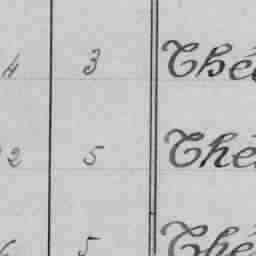 4 3 Thé
2 5 Thé
5 Thé